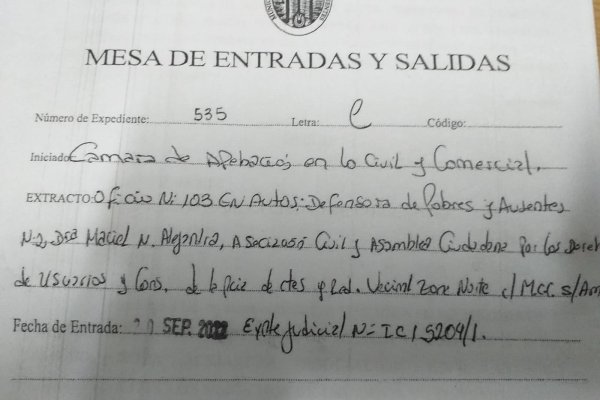 MESA DE ENTRADAS Y SALIDAS
Número de Expediente: 535 Letra: C Código:
Iniciado Camara de Apelación en lo Civil y Comercial.
EXTRACTO Oficio Nº 103 En Autos: Defensora de Pobres y Ausentes
Nº 2, Dra Maciel N. Alejandra, Asociación Civil y Asamblea Ciudadana por los Derech
de Usuarios y Cons. de la Pcia de Ctes y Red. Vecinal Zona Norte c/ M.C.C. s/ Am
Fecha de Entrada: 20 SEP. 2022 Expte Judicial Nº IC1 5204/1.